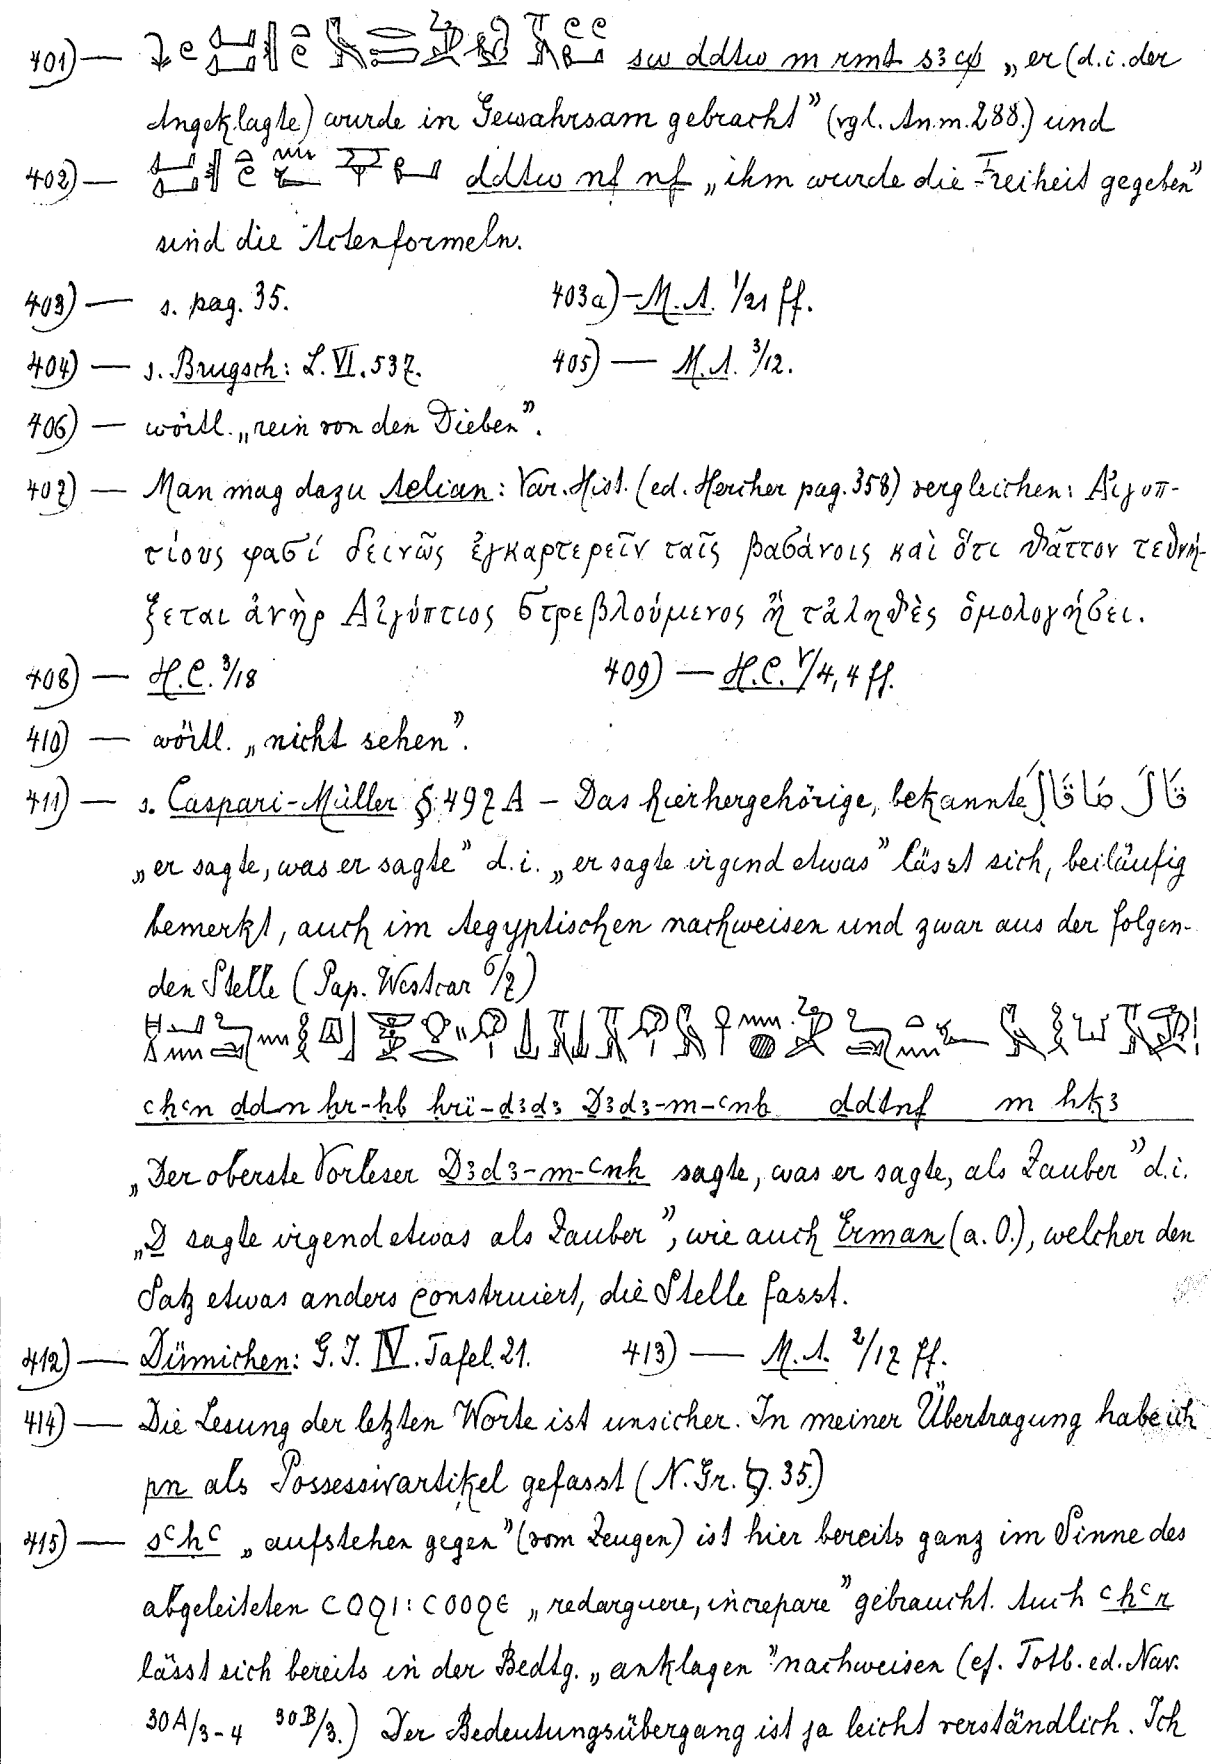 401) — sw ddtw m rmt s3w „er (d.i. der
Angeklagte) wurde in Gewahrsam gebracht” (vgl. Anm. 288.) und
402) — ddtw nf nf „ihm wurde die Freiheit gegeben”
sind die Actenformeln.
403) — s. pag. 35. 403a) — M.A. 1/21 ff.
404) — s. Brugsch: L. VI. 537. 405) — M.A. 3/12.
406) — wörtl. „rein von den Dieben”.
407) — Man mag dazu Aelian: Var. Hist. (ed. Hercher pag. 358) vergleichen: Αἰγυπ-
τίους φασί δεινῶς ἐγκαρτερεῖν ταῖς βασάνοις καὶ ὅτι θᾶττον τεθνή-
ξεται ἀνὴρ Αἰγύπτιος στρεβλούμενος ἢ τἀληθὲς ὁμολογήσει.
408) — H.C. 3/18 409) — H.C. V/4, 4 ff.
410) — wörtl. „nicht sehen”.
411) — s. Caspari-Müller § 497 A – Das hierhergehörige, bekannte قال ما قال
„er sagte, was er sagte” d.i. „er sagte irgend etwas” lässt sich, beiläufig
bemerkt, auch im Aegyptischen nachweisen und zwar aus der folgen-
den Stelle (Pap. Westcar 6/7)
ꜥḥꜥn ḏdn ẖr-ḥb ḥrï-ḏ3ḏ3 Ḏ3ḏ3-m-ꜥnḫ ḏdtnf m ḥk3
„Der oberste Vorleser Ḏ3ḏ3-m-ꜥnḫ sagte, was er sagte, als Zauber” d.i.
„Ḏ sagte irgend etwas als Zauber”, wie auch Erman (a. O.), welcher den
Satz etwas anders construiert, die Stelle fasst.
412) — Dümichen: G. I. IV. Tafel. 21. 413) — M.A. 2/17 ff.
414) — Die Lesung der letzten Worte ist unsicher. In meiner Übertragung habe ich
pn als Possessivartikel gefasst (N. Gr. §. 35.)
415) — sꜥḥꜥ „aufstehen gegen” (vom Zeugen) ist hier bereits ganz im Sinne des
abgeleiteten ⲥⲟϩⲓ : ⲥⲟⲟϩⲉ „redarguere, increpare” gebraucht. Auch ꜥḥꜥn
lässt sich bereits in der Bedtg. „anklagen” nachweisen (cf. Totb. ed. Nav.
30A/3-4 30B/3.) Der Bedeutungsübergang ist ja leicht verständlich. Ich